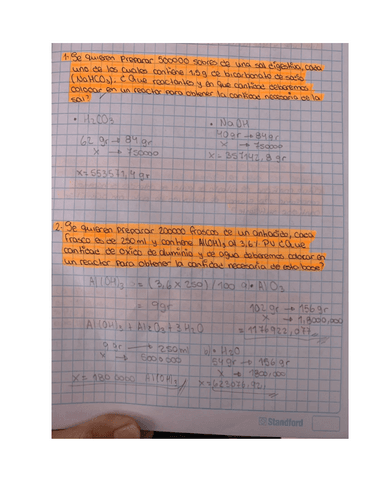 1- Se quieren preparar 500000 sobres de una sal digestiva, cada
uno de los cuales contiene 1,5g de bicarbonato de sodio
(NaHCO3). ¿Que reactantes y en que cantidad deberemos
colocar en un reactor para obtener la cantidad necesaria de la
sal?
• H2CO3
62 gr → 84 gr
x → 750000
x = 553571,4gr
• NaOH
40gr → 84gr
x → 750000
x = 357142,8gr
2- Se quieren preparar 200000 frascos de un antiacido, cada
frasco es de 250ml y contiene Al(OH)3 al 3,6% PV ¿Que
cantidad de oxido de aluminio y de agua deberemos colocar en
un reactor para obtener la cantidad necesaria de esta base?
Al(OH)3 = (3,6 x 250) / 100
= 9gr
102 gr → 156gr
x → 1,8000,000
= 1176922,077
Al(OH)3 + Al2O3 + 3 H2O
9 gr → 250ml
x → 5000000
x = 1800000 Al(OH)3
H2O
54gr → 156gr
x → 1800,000
x = 623076,92
Standford